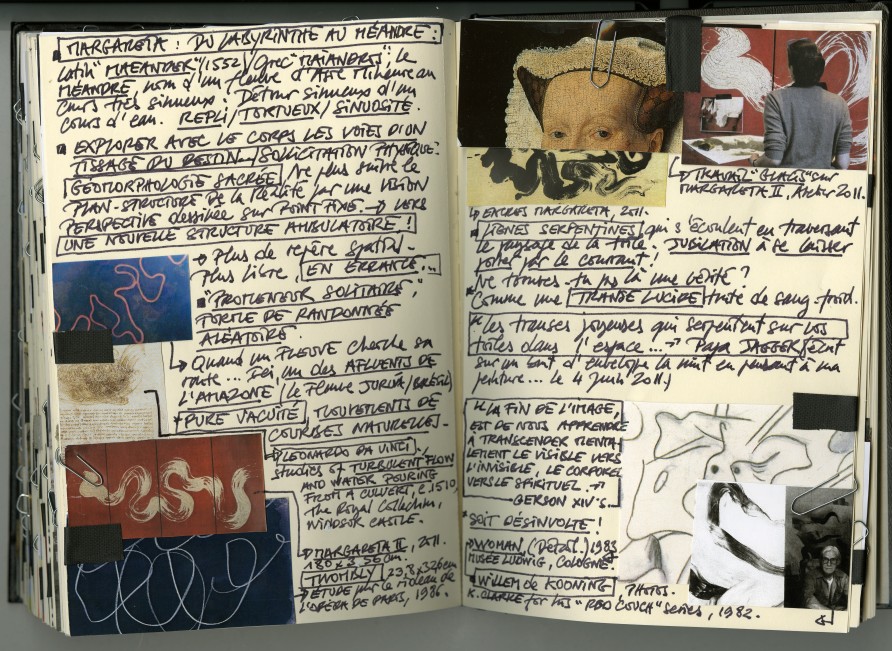 MARGARETA : DU LABYRINTHE AU MÉANDRE :
Latin "MAEANDER" (1552) / grec "MAIANDROS", le
MÉANDRE, nom d'un fleuve d'Asie Mineure au
cours très sinueux : Détour sinueux d'un
cours d'eau. REPLI / TORTUEUX / SINUOSITÉ.
EXPLORER AVEC LE CORPS LES VOIES D'UN
TISSAGE DU DESSIN / SOLLICITATION PHYSIQUE.
GÉOMORPHOLOGIE SACRÉE / Ne plus suivre le
PLAN-STRUCTURE de la Réalité par une VISION
PERSPECTIVE dessinée sur POINT FIXE. → VERS
UNE NOUVELLE STRUCTURE AMBULATOIRE !
Plus de repère spatial.
Plus libre, EN ERRANCE...
"PROMENEUR SOLITAIRE",
SORTE DE RANDONNÉE
ALÉATOIRE.
Quand un FLEUVE cherche sa
route... Ici un des AFLUENTS DE
L'AMAZONE (le Fleuve JURUA / BRÉSIL)
PURE VACUITÉ, MOUVEMENTS DE
COURBES NATURELLES.
LEONARDO DA VINCI.
Studies of TURBULENT FLOW
AND WATER POURING
FROM A CULVERT, c.1510,
The Royal Collection,
WINDSOR CASTLE.
MARGARETA II, 2011.
180 x 356 cm.
TWOMBLY 23,8 x 326 cm
ETUDE pour le rideau de
L'OPÉRA DE PARIS, 1986.
TRAVAIL "GLACIS" sur
MARGARETA II, Atelier 2011.
ENCRES MARGARETA, 2011.
LIGNES SERPENTINES qui s'écoulent en traversant
le paysage de la toile. JUBILATION à se laisser
porter par le courant !
Ne trouves-tu pas là une vérité ?
Comme une TRANSE LUCIDE faite de sang-froid.
"Les transes joyeuses qui serpentent sur vos
toiles dans l'espace..." Papa JAGGER (écrit
sur un bout d'enveloppe la nuit en pensant à ma
peinture... le 4 Juin 2011.)
"LA FIN DE L'IMAGE,
EST DE NOUS APPRENDRE
À TRANSCENDER MENTA-
LEMENT LE VISIBLE VERS
L'INVISIBLE, LE CORPOREL
VERS LE SPIRITUEL."
GERSON XIV'S.
SOIT DÉSINVOLTE !
WOMAN, (Détail.) 1983
MUSÉE LUDWIG, COLOGNE
Willem de KOONING PHOTOS.
K. CLARKE for his "RED COUCH" series, 1982.